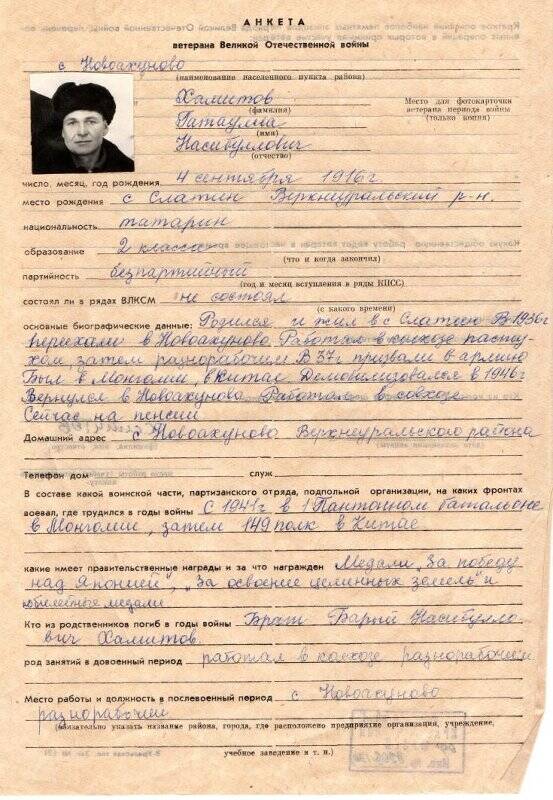 АНКЕТА
ветерана Великой Отечественной войны
с Новоахуново
(наименование населенного пункта района)
Хамитов
(фамилия)
Место для фотокарточки
ветерана периода войны
(только копия)
Гатаулла
(имя)
Насибуллович
(отчество)
число, месяц, год рождения 4 сентября 1916 г.
место рождения с Слатин Верхнеуральский р-н.
национальность татарин
образование 2 класса
(что и когда закончил)
партийность безпартийный
(год и месяц вступления в ряды КПСС)
состоял ли в рядах ВЛКСМ не состоял
(с какого времени)
основные биографические данные: Родился и жил в с Слатино В 1936г
переехали в Новоахуново Работал в колхозе пасту-
хом, затем разнорабочем В 37г призвали в армию
Был в Монголии, в Китае Демовилизовался в 1946г
Вернулся в Новоахунова Работал в совхозе
Сейчас на пенсии
Домашний адрес с Новоахунова Верхнеуральского района
Телефон дом служ
В составе какой воинской части, партизанского отряда, подпольной организации, на каких фронтах
воевал, где трудился в годы войны С 1941г в 1 Пантонном батальоне
в Монголии, затем 149 полк в Китае.
какие имеет правительственные награды и за что награжден Медали „За победу
над Японией", „За освоение целинных земель" и
юбилейные медали
Кто из родственников погиб в годы войны Брат Барый Насибулло-
вич Хамитов.
род занятий в довоенный период работал в колхозе разнорабочем
Место работы и должность в послевоенный период с Новоахуново
разнорабочем
(обязательно указать название района, города, где расположено предприятие организация, учреждение,
учебное заведение и т. п.)